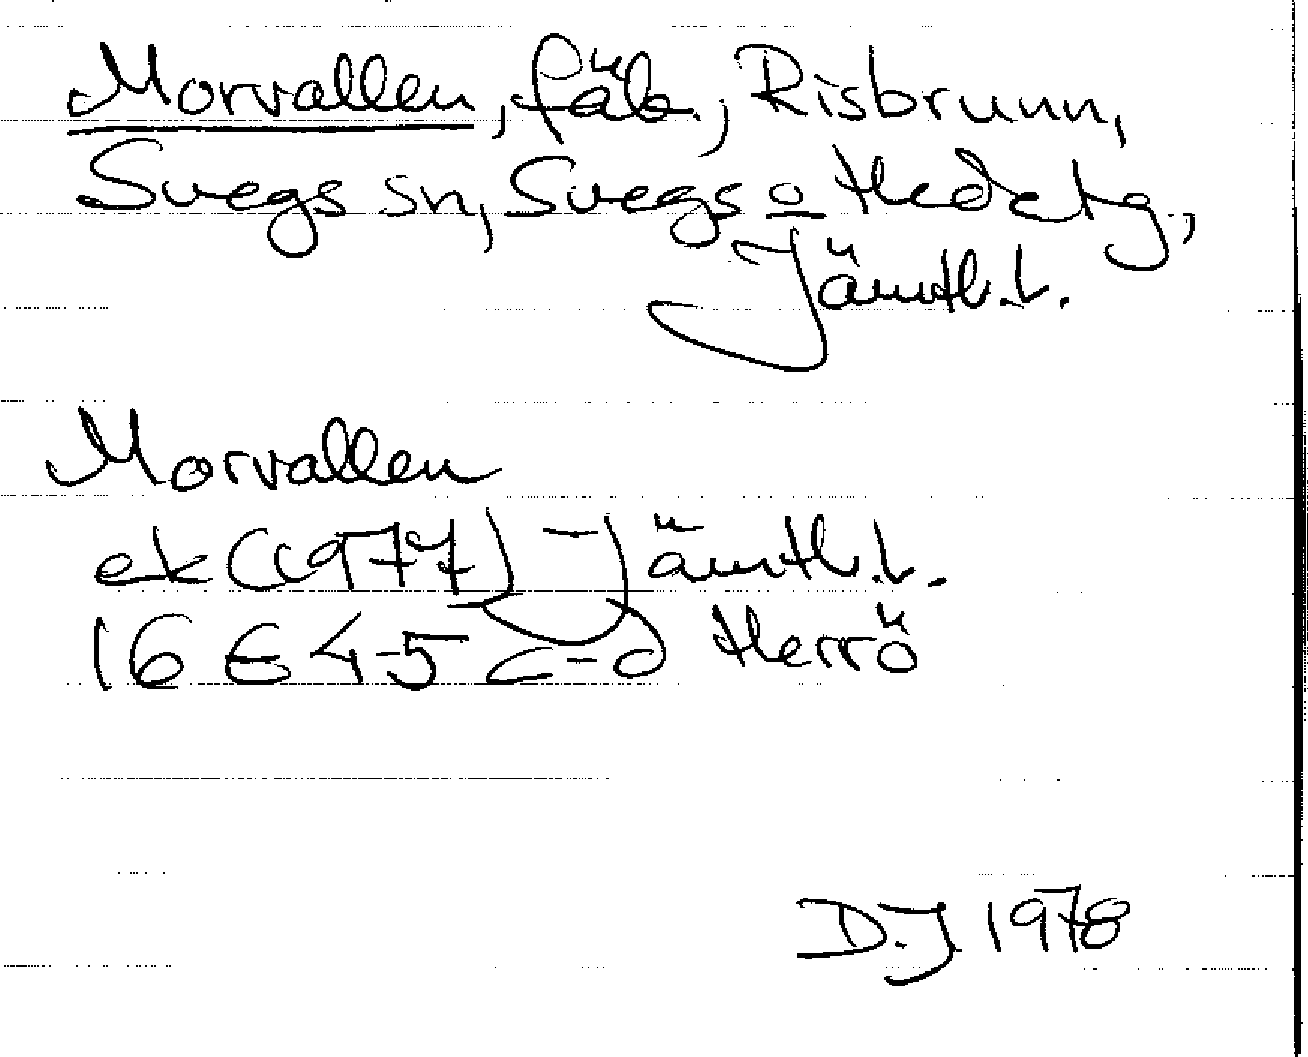 Morvallen, fäb., Risbrunn,
Svegs sn, Svegs o Hede tg,
Jämtl. l.
Morvallen
ek (1977) - Jämtl. l.
16 E 4-5 c-d Herrö
D.J. 1978